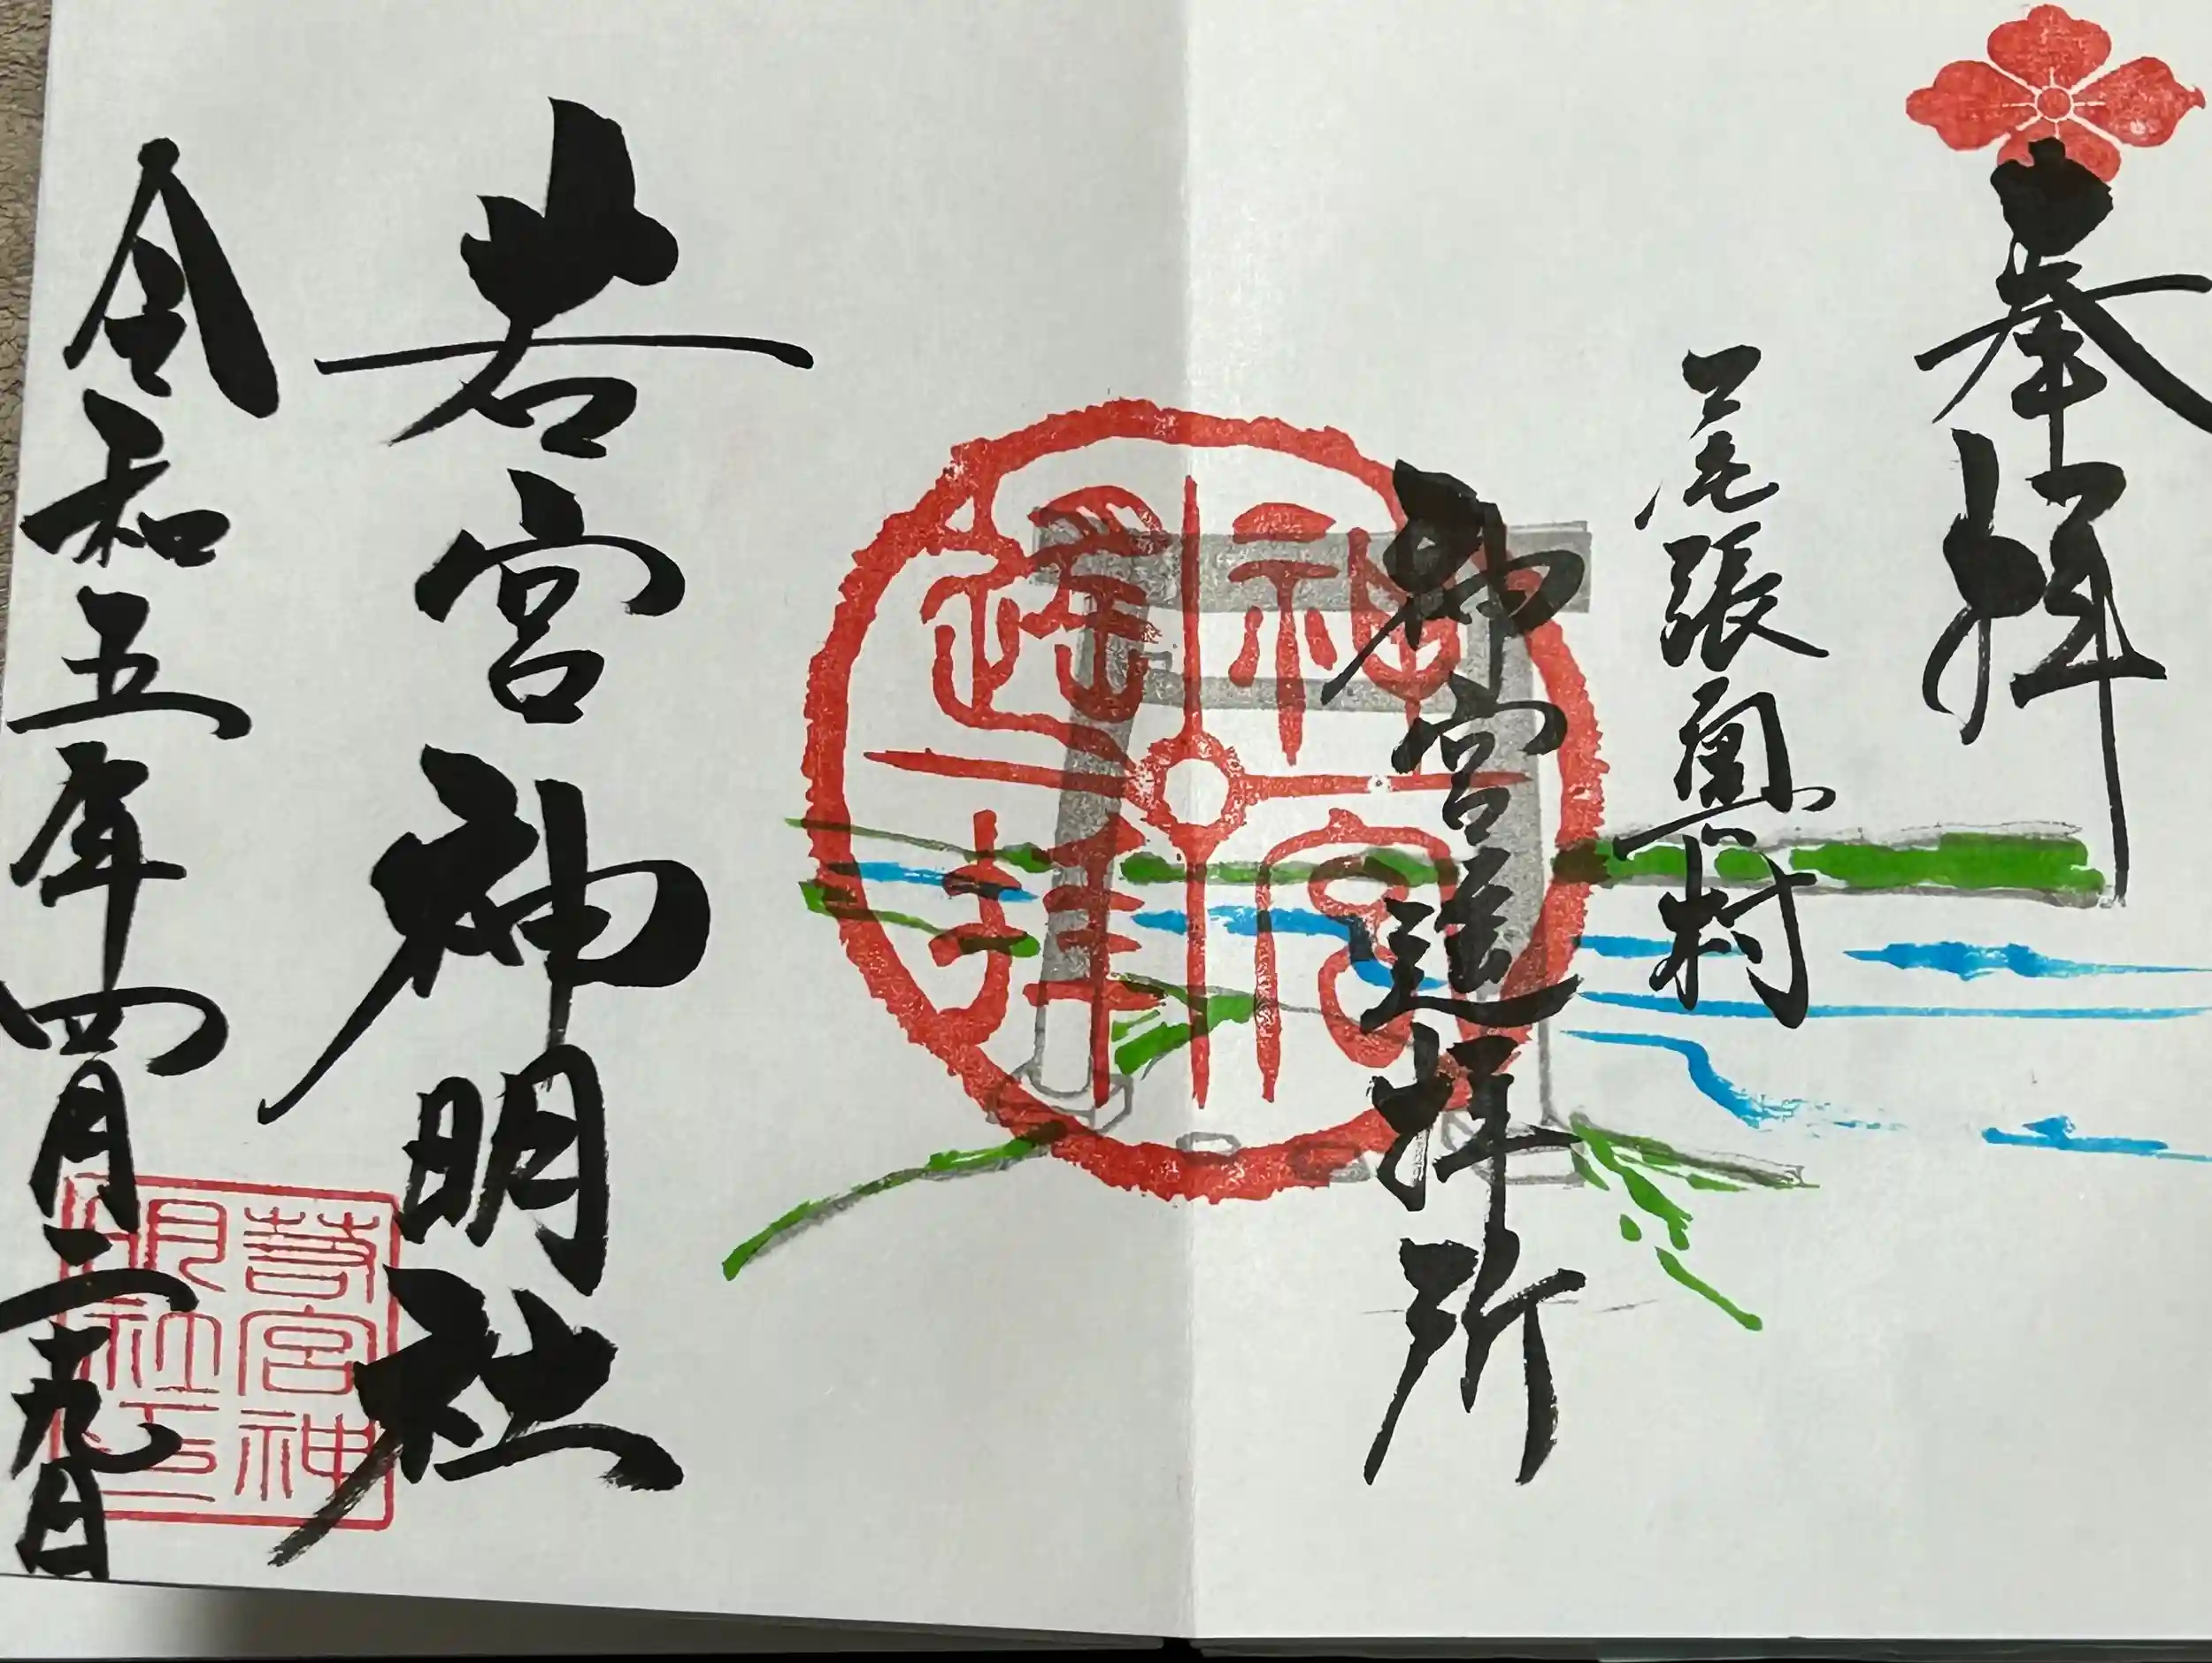 奉拝
尾張奥村
神宮遥拝所
神宮遥拝
若宮神明社
若宮神明社印
令和五年四月二十九日